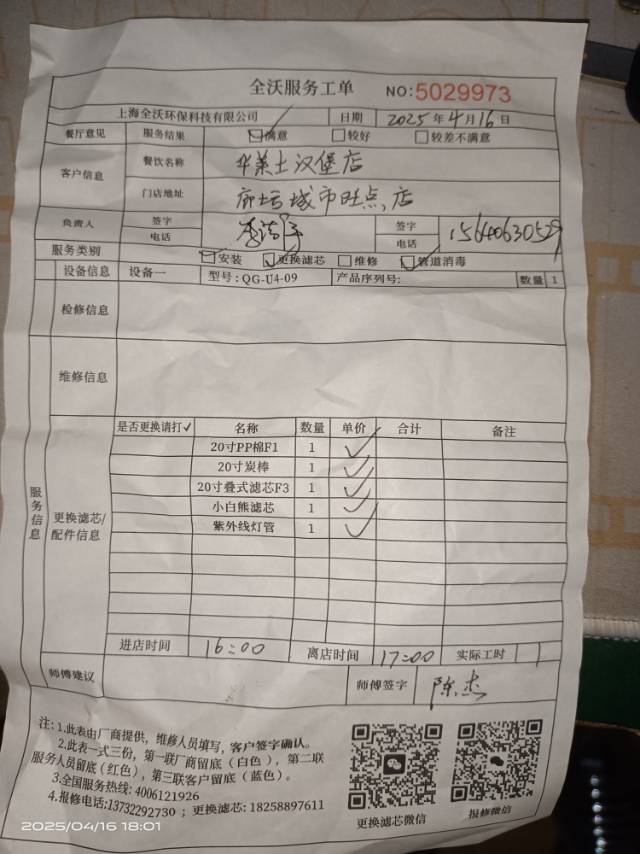 全沃服务工单 NO:5029973
上海全沃环保科技有限公司 日期 2025年4月16日
餐厅意见 服务结果 ☑满意 □较好 □较差不满意
客户信息 餐饮名称 华莱士汉堡店
门店地址 廊坊城市旺点店
负责人 签字 签字
电话 电话 15640630529
服务类别 □安装 ☑更换滤芯 □维修 ☑管道消毒
设备信息 设备一 型号:QG-U4-09 产品序列号: 数量 1
检修信息
维修信息
服务信息
更换滤芯/
配件信息
是否更换请打✓ 名称 数量 单价 合计 备注
20寸PP棉F1 1 ✓
20寸炭棒 1 ✓
20寸叠式滤芯F3 1 ✓
小白熊滤芯 1 ✓
紫外线灯管 1 ✓
进店时间 16:00 离店时间 17:00 实际工时 1
师傅建议 师傅签字 陈杰
注:1.此表由厂商提供，维修人员填写，客户签字确认。
2.此表一式三份，第一联厂商留底（白色），第二联
服务人员留底(红色)，第三联客户留底（蓝色）。
3.全国服务热线:4006121926
4.报修电话:13732292730；更换滤芯:18258897611
更换滤芯微信 报修微信
2025/04/16 18:01